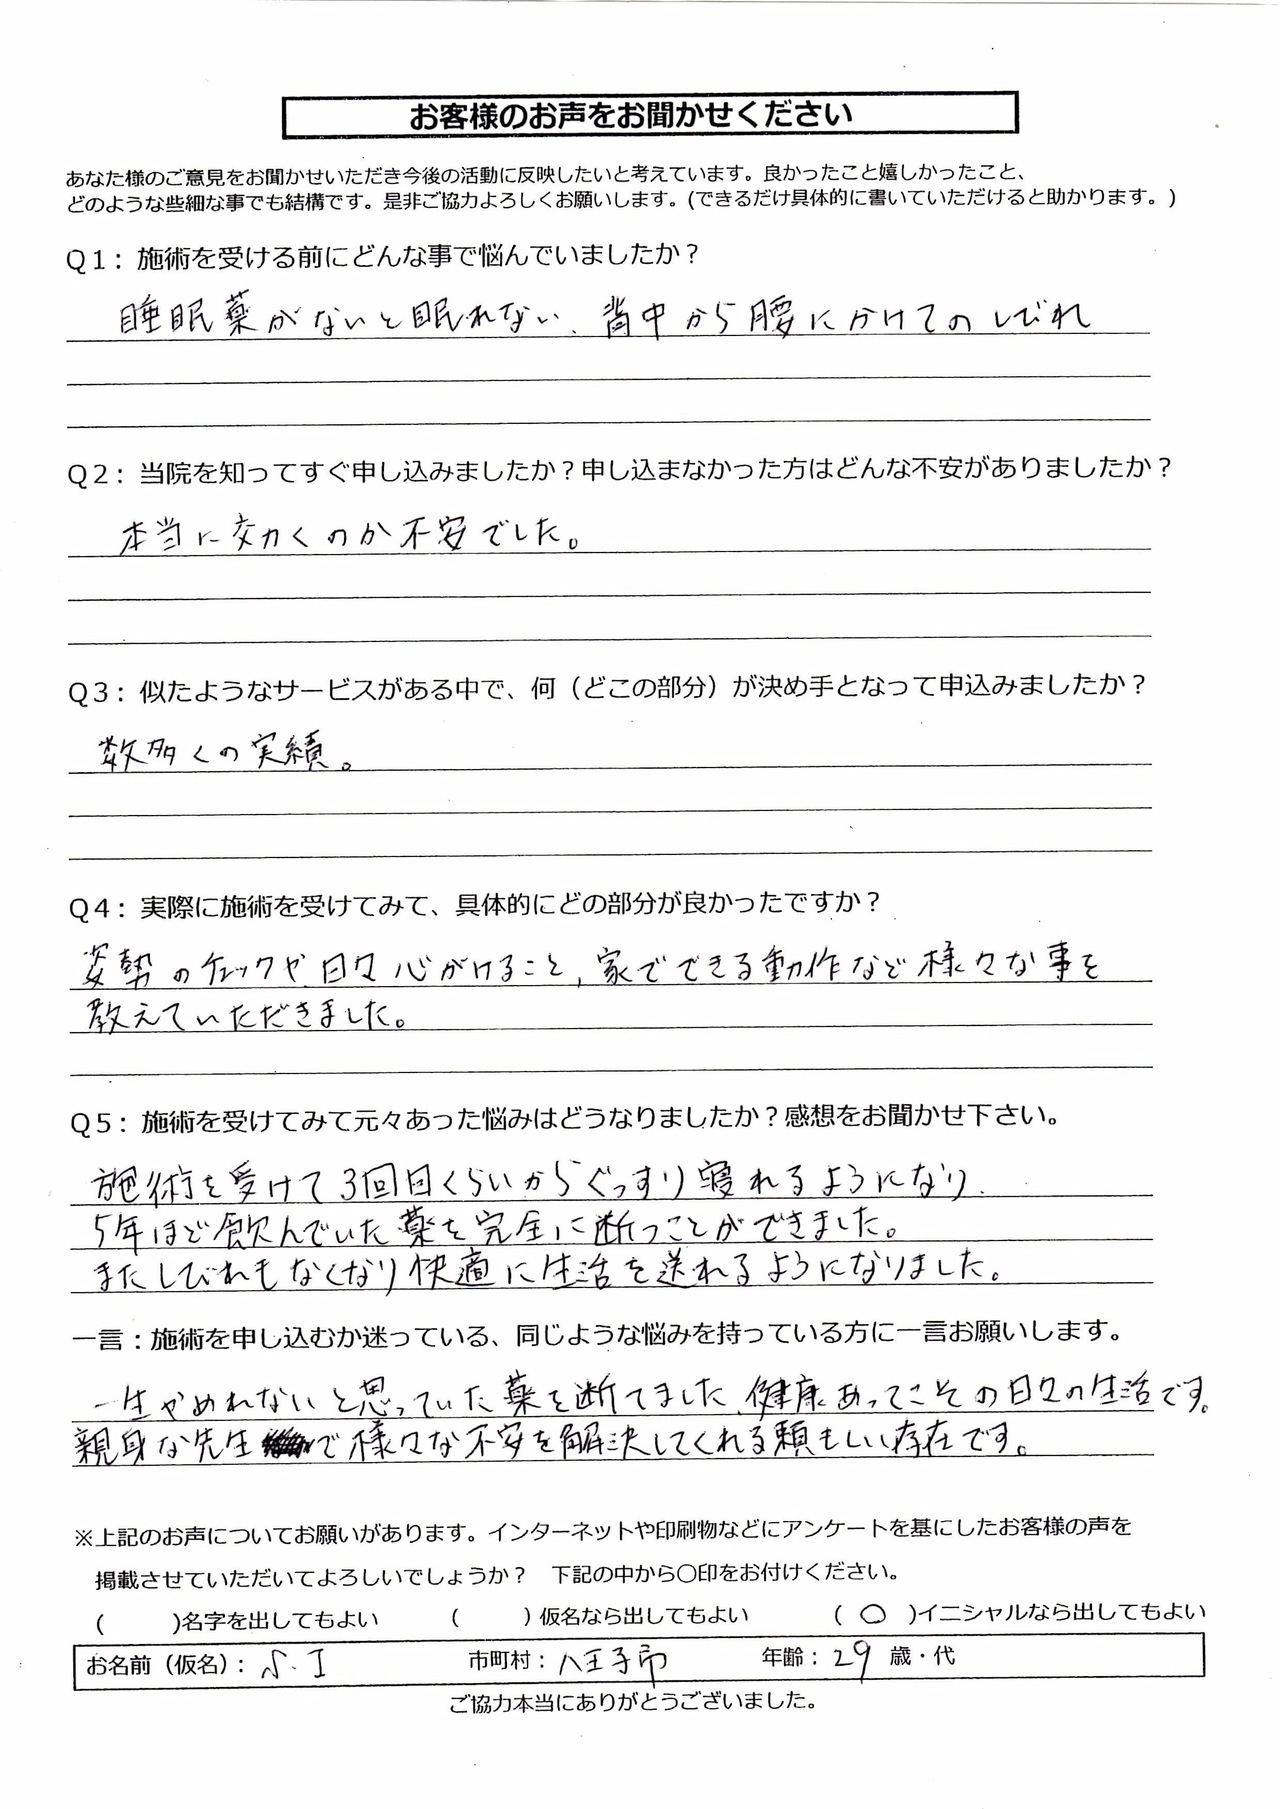 お客様のお声をお聞かせください
あなた様のご意見をお聞かせいただき今後の活動に反映したいと考えています。良かったこと嬉しかったこと、
どのような些細な事でも結構です。是非ご協力よろしくお願いします。(できるだけ具体的に書いていただけると助かります。)
Q1:施術を受ける前にどんな事で悩んでいましたか?
睡眠薬がないと眠れない、背中から腰にかけてのしびれ
Q2:当院を知ってすぐ申し込みましたか?申し込まなかった方はどんな不安がありましたか?
本当に効くのか不安でした。
Q3:似たようなサービスがある中で、何(どこの部分)が決め手となって申込みましたか?
数多くの実績。
Q4:実際に施術を受けてみて、具体的にどの部分が良かったですか?
姿勢のチェックや、日々心がけること、家でできる動作など様々な事を
教えていただきました。
Q5:施術を受けてみて元々あった悩みはどうなりましたか?感想をお聞かせ下さい。
施術を受けて3回目くらいからぐっすり寝れるようになり、
5年ほど飲んでいた薬を完全に断つことができました。
またしびれもなくなり快適に生活を送れるようになりました。
一言:施術を申し込むか迷っている、同じような悩みを持っている方に一言お願いします。
一生やめれないと思っていた薬を断てました、健康あってこその日々の生活です。
親身な先生で様々な不安を解決してくれる頼もしい存在です。
※上記のお声についてお願いがあります。インターネットや印刷物などにアンケートを基にしたお客様の声を
掲載させていただいてよろしいでしょうか? 下記の中から〇印をお付けください。
( )名字を出してもよい ( )仮名なら出してもよい (○)イニシャルなら出してもよい
お名前(仮名):S.I 市町村:八王子市 年齢:29歳・代
ご協力本当にありがとうございました。